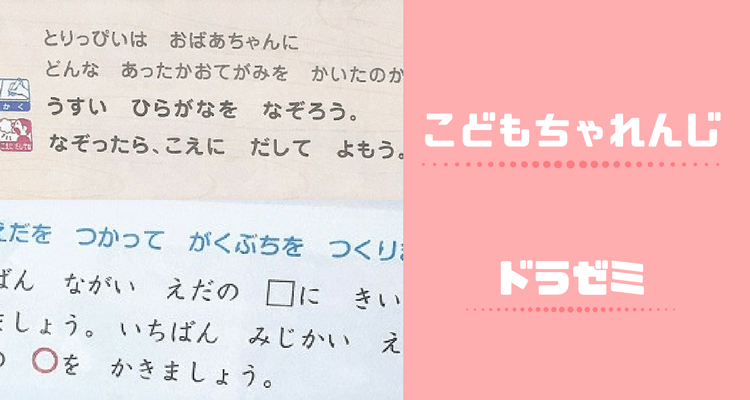 とりっぴいは　おばあちゃんに
どんな　あったかおてがみを　かいたのか
かく
うすい　ひらがなを　なぞろう。
なぞったら、こえに　だして　よもう。
えだを　つかって　がくぶちを　つくり
ばん　ながい　えだの　□に　きい
ましょう。いちばん　みじかい　え
の　○を　かきましょう。
こどもちゃれんじ
ドラゼミ